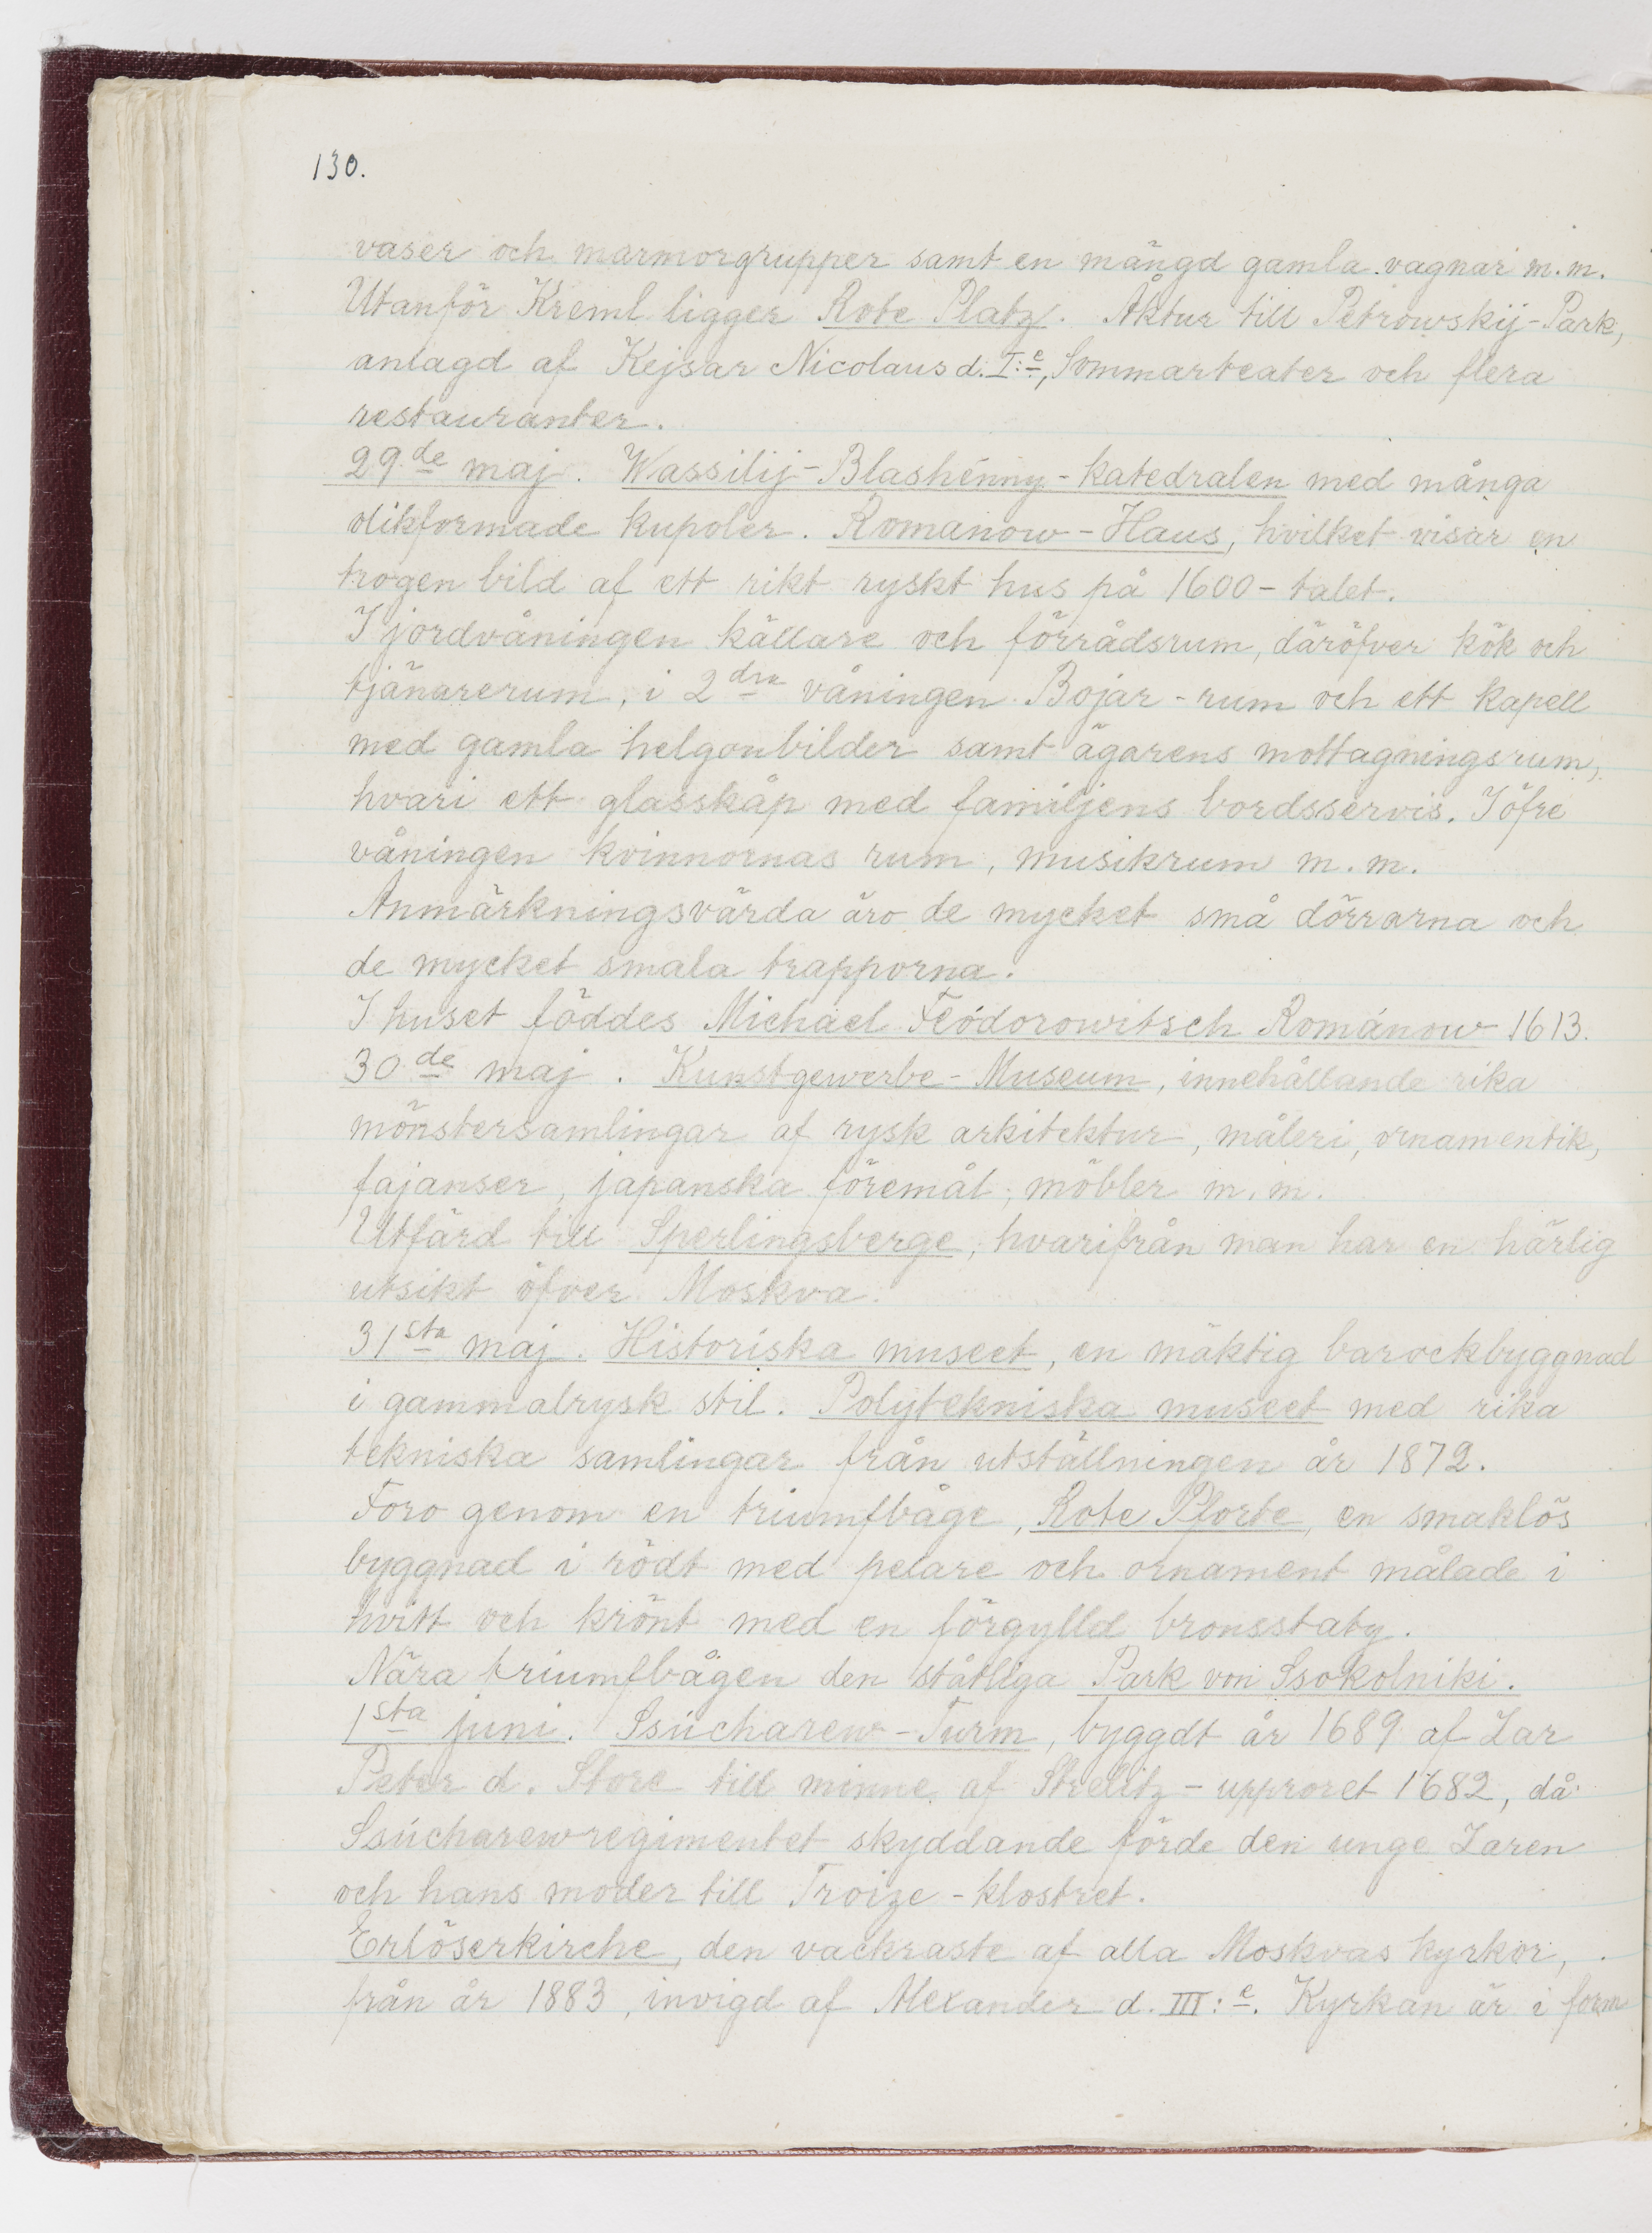 130.
vaser och marmorgrupper samt en mängd gamla vagnar m.m.
Utanför Kreml ligger Rote Platz. Åktur till Petrowskij-Park,
anlagd af Kejsar Nicolaus d. I:e, Sommarteater och flera
restauranter.
29de maj. Wassilij-Blashénny-katedralen med många
olikformade kupoler. Romanow-Haus, hvilket visar en
trogen bild af ett rikt ryskt hus på 1600-talet.
I jordvåningen källare och förrådsrum, däröfver kök och
tjänarerum, i 2dra våningen Bojar-rum och ett kapell
med gamla helgonbilder samt ägarens mottagningsrum,
hvari ett glasskåp med familjens bordsservis. I öfre
våningen kvinnornas rum, musikrum m.m.
Anmärkningsvärda äro de mycket små dörrarna och
de mycket smala trapporna.
I huset föddes Michael Feódorowitsch Románow 1613.
30de maj. Kunstgewerbe-Museum, innehållande rika
mönstersamlingar af rysk arkitektur, måleri, ornamentik,
fajanser, japanska föremål, möbler m.m.
Utfärd till Sperlingsberge, hvarifrån man har en härlig
utsikt öfver Moskva.
31sta maj. Historiska museet, en mäktig barockbyggnad
i gammalrysk stil. Polytekniska museet med rika
tekniska samlingar från utställningen år 1872.
Foro genom en triumfbåge, Rote Pforte, en smaklös
byggnad i rödt med pelare och ornament målade i
hvitt och krönt med en förgylld bronsstaty.
Nära triumfbågen den ståtliga Park von Ssokolniki.
1sta juni. Ssúcharew-Turm, byggdt år 1689 af Zar
Peter d. Store till minne af Strelitz-upproret 1682, då
Ssúcharewregimentet skyddande förde den unge Zaren
och hans moder till Troize-klostret.
Erlöserkirche, den vackraste af alla Moskvas kyrkor,
från år 1883, invigd af Alexander d. III:e. Kyrkan är i form